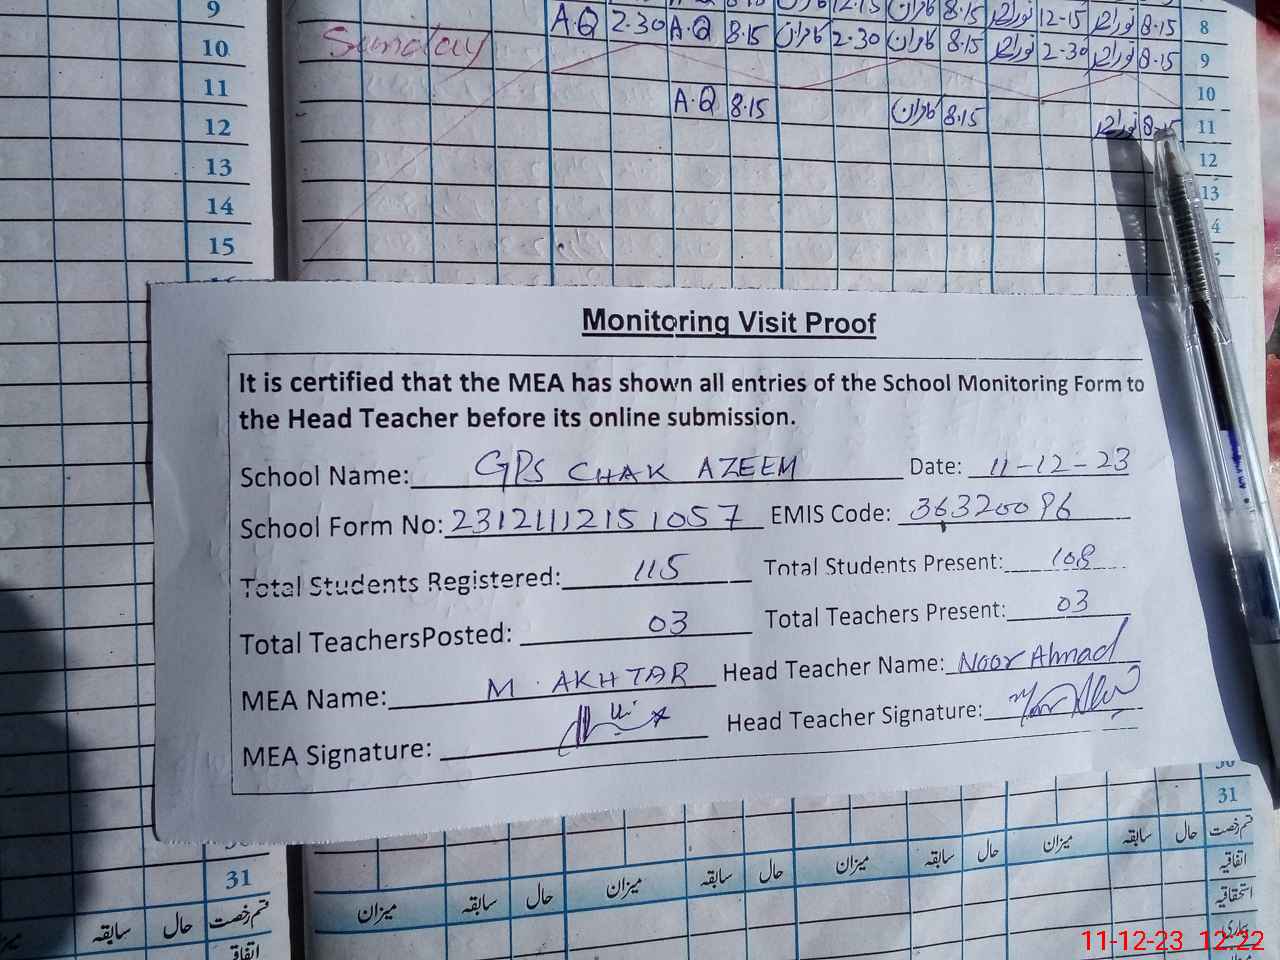 9
A.Q 2.30 A.Q 8.15 کامران 2.30 کامران 8.15 نور احمد 12-15 نور احمد 8.15 8
10 Sunday نور احمد 2.30 نور احمد 8.15 9
11 10
12 A.Q 8.15 کامران 8.15 نور احمد 8.15 11
13 12
14 13
15
Monitoring Visit Proof
It is certified that the MEA has shown all entries of the School Monitoring Form to
the Head Teacher before its online submission.
School Name: GPS CHAK AZEEM Date: 11-12-23
School Form No: 23121112151057 EMIS Code: 36320096
Total Students Registered: 115 Total Students Present: 108
Total TeachersPosted: 03 Total Teachers Present: 03
MEA Name: M. AKHTAR Head Teacher Name: Noor Ahmad
MEA Signature: Head Teacher Signature:
31
31
قسم رخصت حال سابقہ میزان حال سابقہ میزان حال سابقہ میزان حال سابقہ میزان
اتفاقیہ
استحقاقیہ
بیماری
قسم رخصت حال سابقہ میزان
اتفاقیہ
11-12-23 12:22